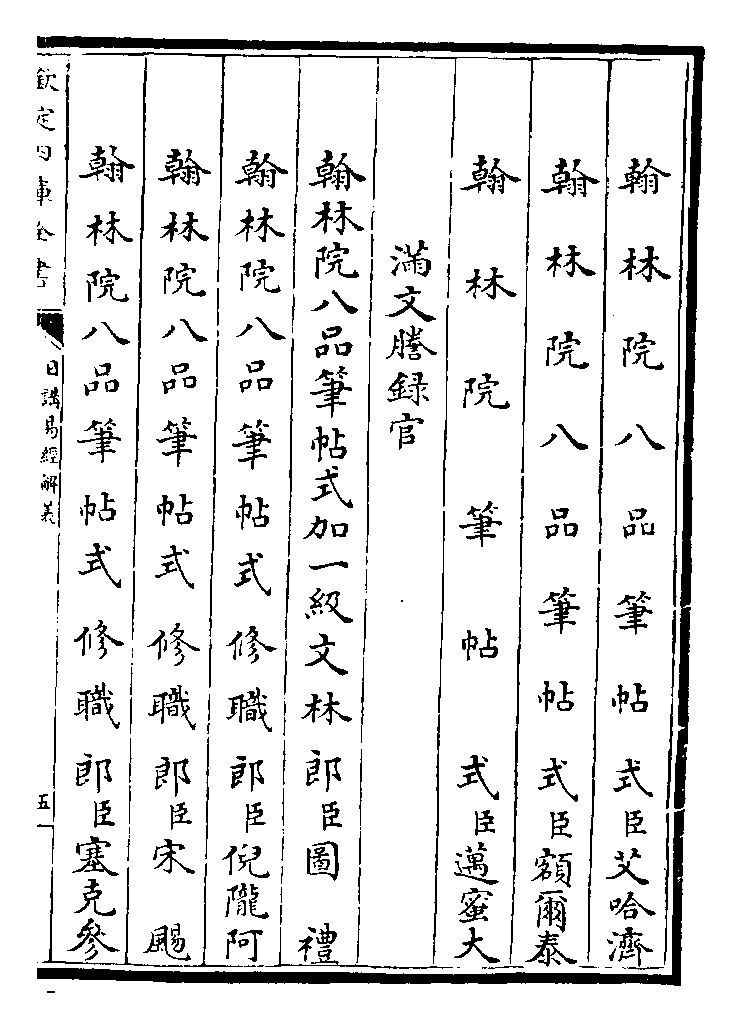 翰林院八品筆帖式臣艾哈濟
翰林院八品筆帖式臣額爾泰
翰林院筆帖式臣邁蜜大
滿文謄録官
翰林院八品筆帖式加一級文林郎臣圖禮
翰林院八品筆帖式修職郎臣倪隴阿
翰林院八品筆帖式修職郎臣宋颺
翰林院八品筆帖式修職郎臣塞克參
欽定四庫全書
日講易經解義
五